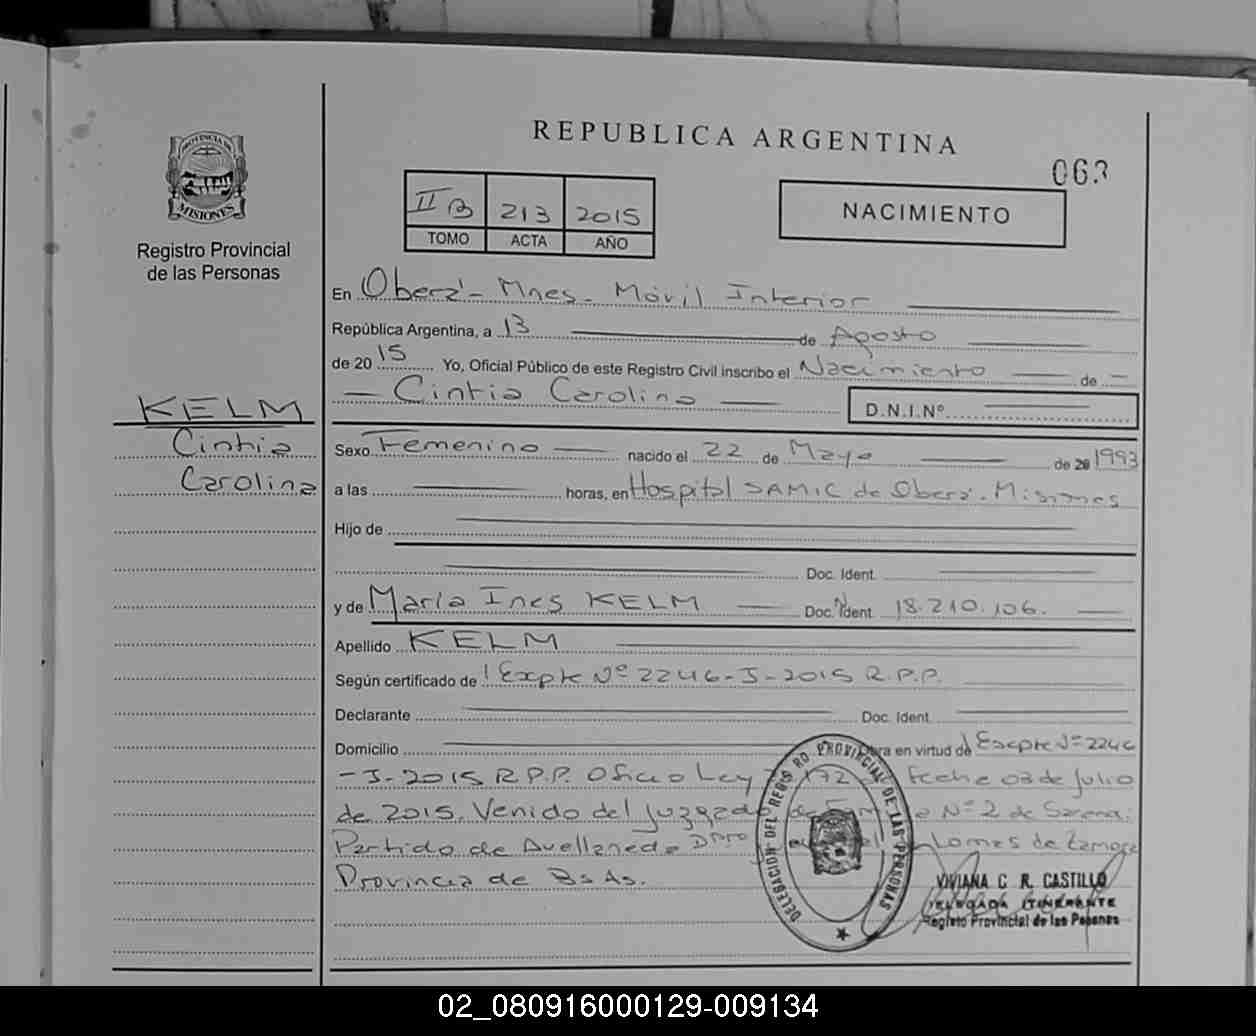 REPUBLICA ARGENTINA
063
PROVINCIA DE
MISIONES
Registro Provincial
de las Personas
II B 213 2015
TOMO ACTA AÑO
NACIMIENTO
En Oberá - Mnes - Móvil Interior
República Argentina, a 13 de Agosto
de 20 15 Yo, Oficial Público de este Registro Civil inscribo el Nacimiento de
Cintia Carolina D.N.I.Nº
KELM
Cintia
Carolina
Sexo Femenino nacido el 22 de Mayo de 20 1993
a las horas, en Hospital SAMIC de Oberá - Misiones
Hijo de
Doc. Ident.
y de María Ines KELM Doc. Ident. 18.210.106.
Apellido KELM
Según certificado de Expte Nº 2246-J-2015 R.P.P.
Declarante Doc. Ident.
Domicilio Obra en virtud de Expte Nº 2246
-J-2015 R.P.P. Oficio Ley 172 Fecha 03 de Julio
de 2015. Venido del Juzgado de Nº 2 de
Partido de Avellaneda Dpto Lomas de Zamora
Provincia de Bs As.
DELEGACION DEL REGISTRO PROVINCIAL DE LAS PERSONAS
VIVIANA C R. CASTILLO
DELEGADA ITINERANTE
Registro Provincial de las Personas
02_080916000129-009134